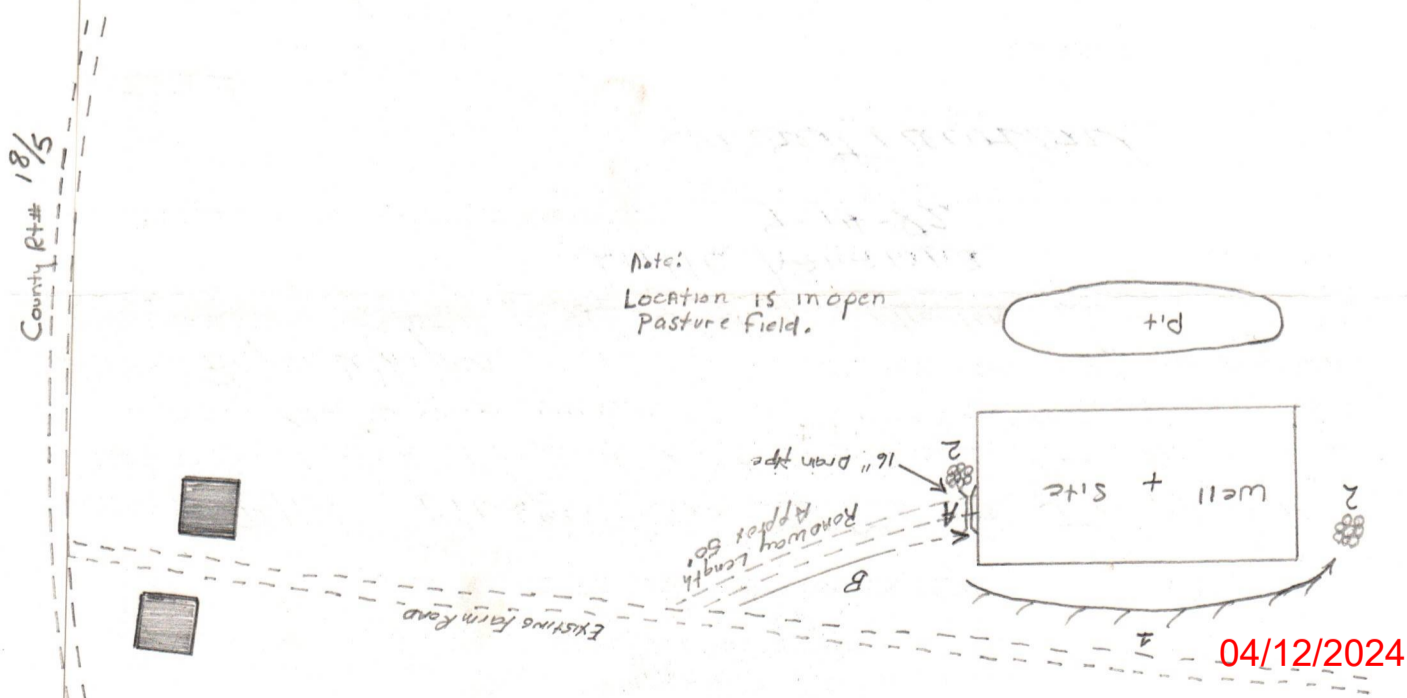 County Rt# 18/5
Note:
Location is in open
Pasture field.
Pit
16" Drain Pipe
2
A
Roadway Length
Approx 50'
B
Well + Site
2
Existing Farm Road
1
04/12/2024